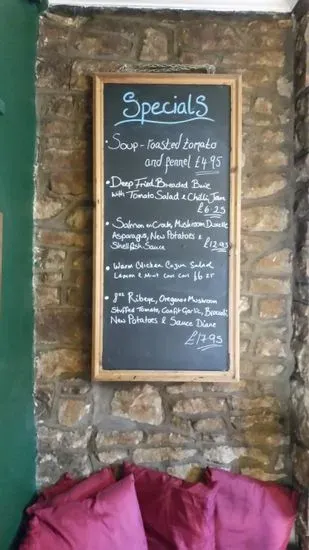 Specials
• Soup - roasted tomato
and fennel £4.95
• Deep Fried Breaded Brie
with Tomato Salad & Chilli Jam
£6.25
• Salmon en Croute, Mushroom Duxelle
Asparagus, New Potatoes &
Shellfish Sauce £12.95
• Warm Chicken Cajun Salad
Lemon & Mint £6.25
• 8oz Ribeye, Oregano Mushroom
Stuffed Tomato, Confit Garlic, Broccoli,
New Potatoes & Sauce Diane
£17.95